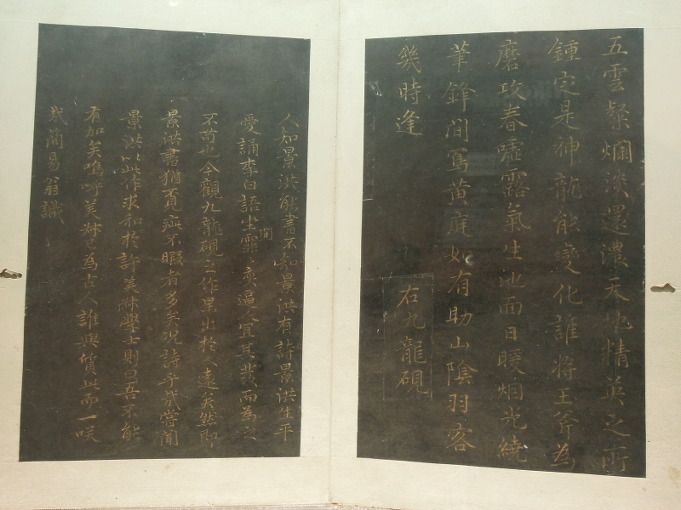 五雲粲爛淡還濃天地精英之所
鍾定是神龍能變化誰將玉斧為
磨攻春噓露氣生池面日暖烟光繞
筆鋒閒寫黄庭如有助山陰羽客
幾時逢
右九龍硯
人知景洪能書不知景洪有詩景洪生平
愛誦李白語坐靈
閒
宜其裴而為之
不苟也今觀九龍硯之作果出於人遠矣然即
景洪書猶有疵不暇者多矣况詩乎我嘗聞
景洪以此作求和於許美綝學士則曰吾不能
有加矣嗚呼美綝已為古人誰與質此而一咲
我簡易翁識